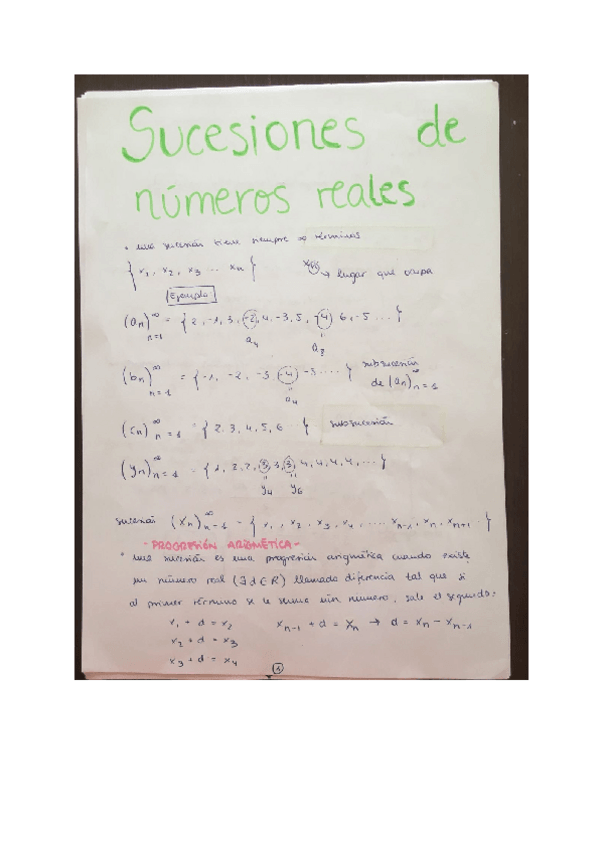 Sucesiones de
números reales
• una sucesión tiene siempre ∞ términos
{x₁, x₂, x₃ ... xₙ} xₙ → lugar que ocupa
Ejemplo:
(aₙ)∞ₙ₌₁ = {2, -1, 3, -2, 4, -3, 5, -4, 6, -5 ...}
a₄ a₈
(bₙ)∞ₙ₌₁ = {-1, -2, -3, -4, -5 ....} subsucesión
a₄ de (aₙ)∞ₙ₌₁
(cₙ)∞ₙ₌₁ = {2, 3, 4, 5, 6 } subsucesión
(yₙ)∞ₙ₌₁ = {1, 2, 2, 3, 3, 3, 4, 4, 4, 4, ...}
y₄ y₆
sucesión (xₙ)∞ₙ₌₁ = {x₁, x₂, x₃, x₄, .... xₙ₋₁, xₙ, xₙ₊₁ .}
- PROGRESIÓN ARIGMÉTICA -
• una sucesión es una progresión arigmética cuando existe
un número real (∃ d ∈ R) llamado diferencia tal que si
al primer término se le suma un número, sale el segundo:
x₁ + d = x₂ xₙ₋₁ + d = xₙ → d = xₙ - xₙ₋₁
x₂ + d = x₃
x₃ + d = x₄